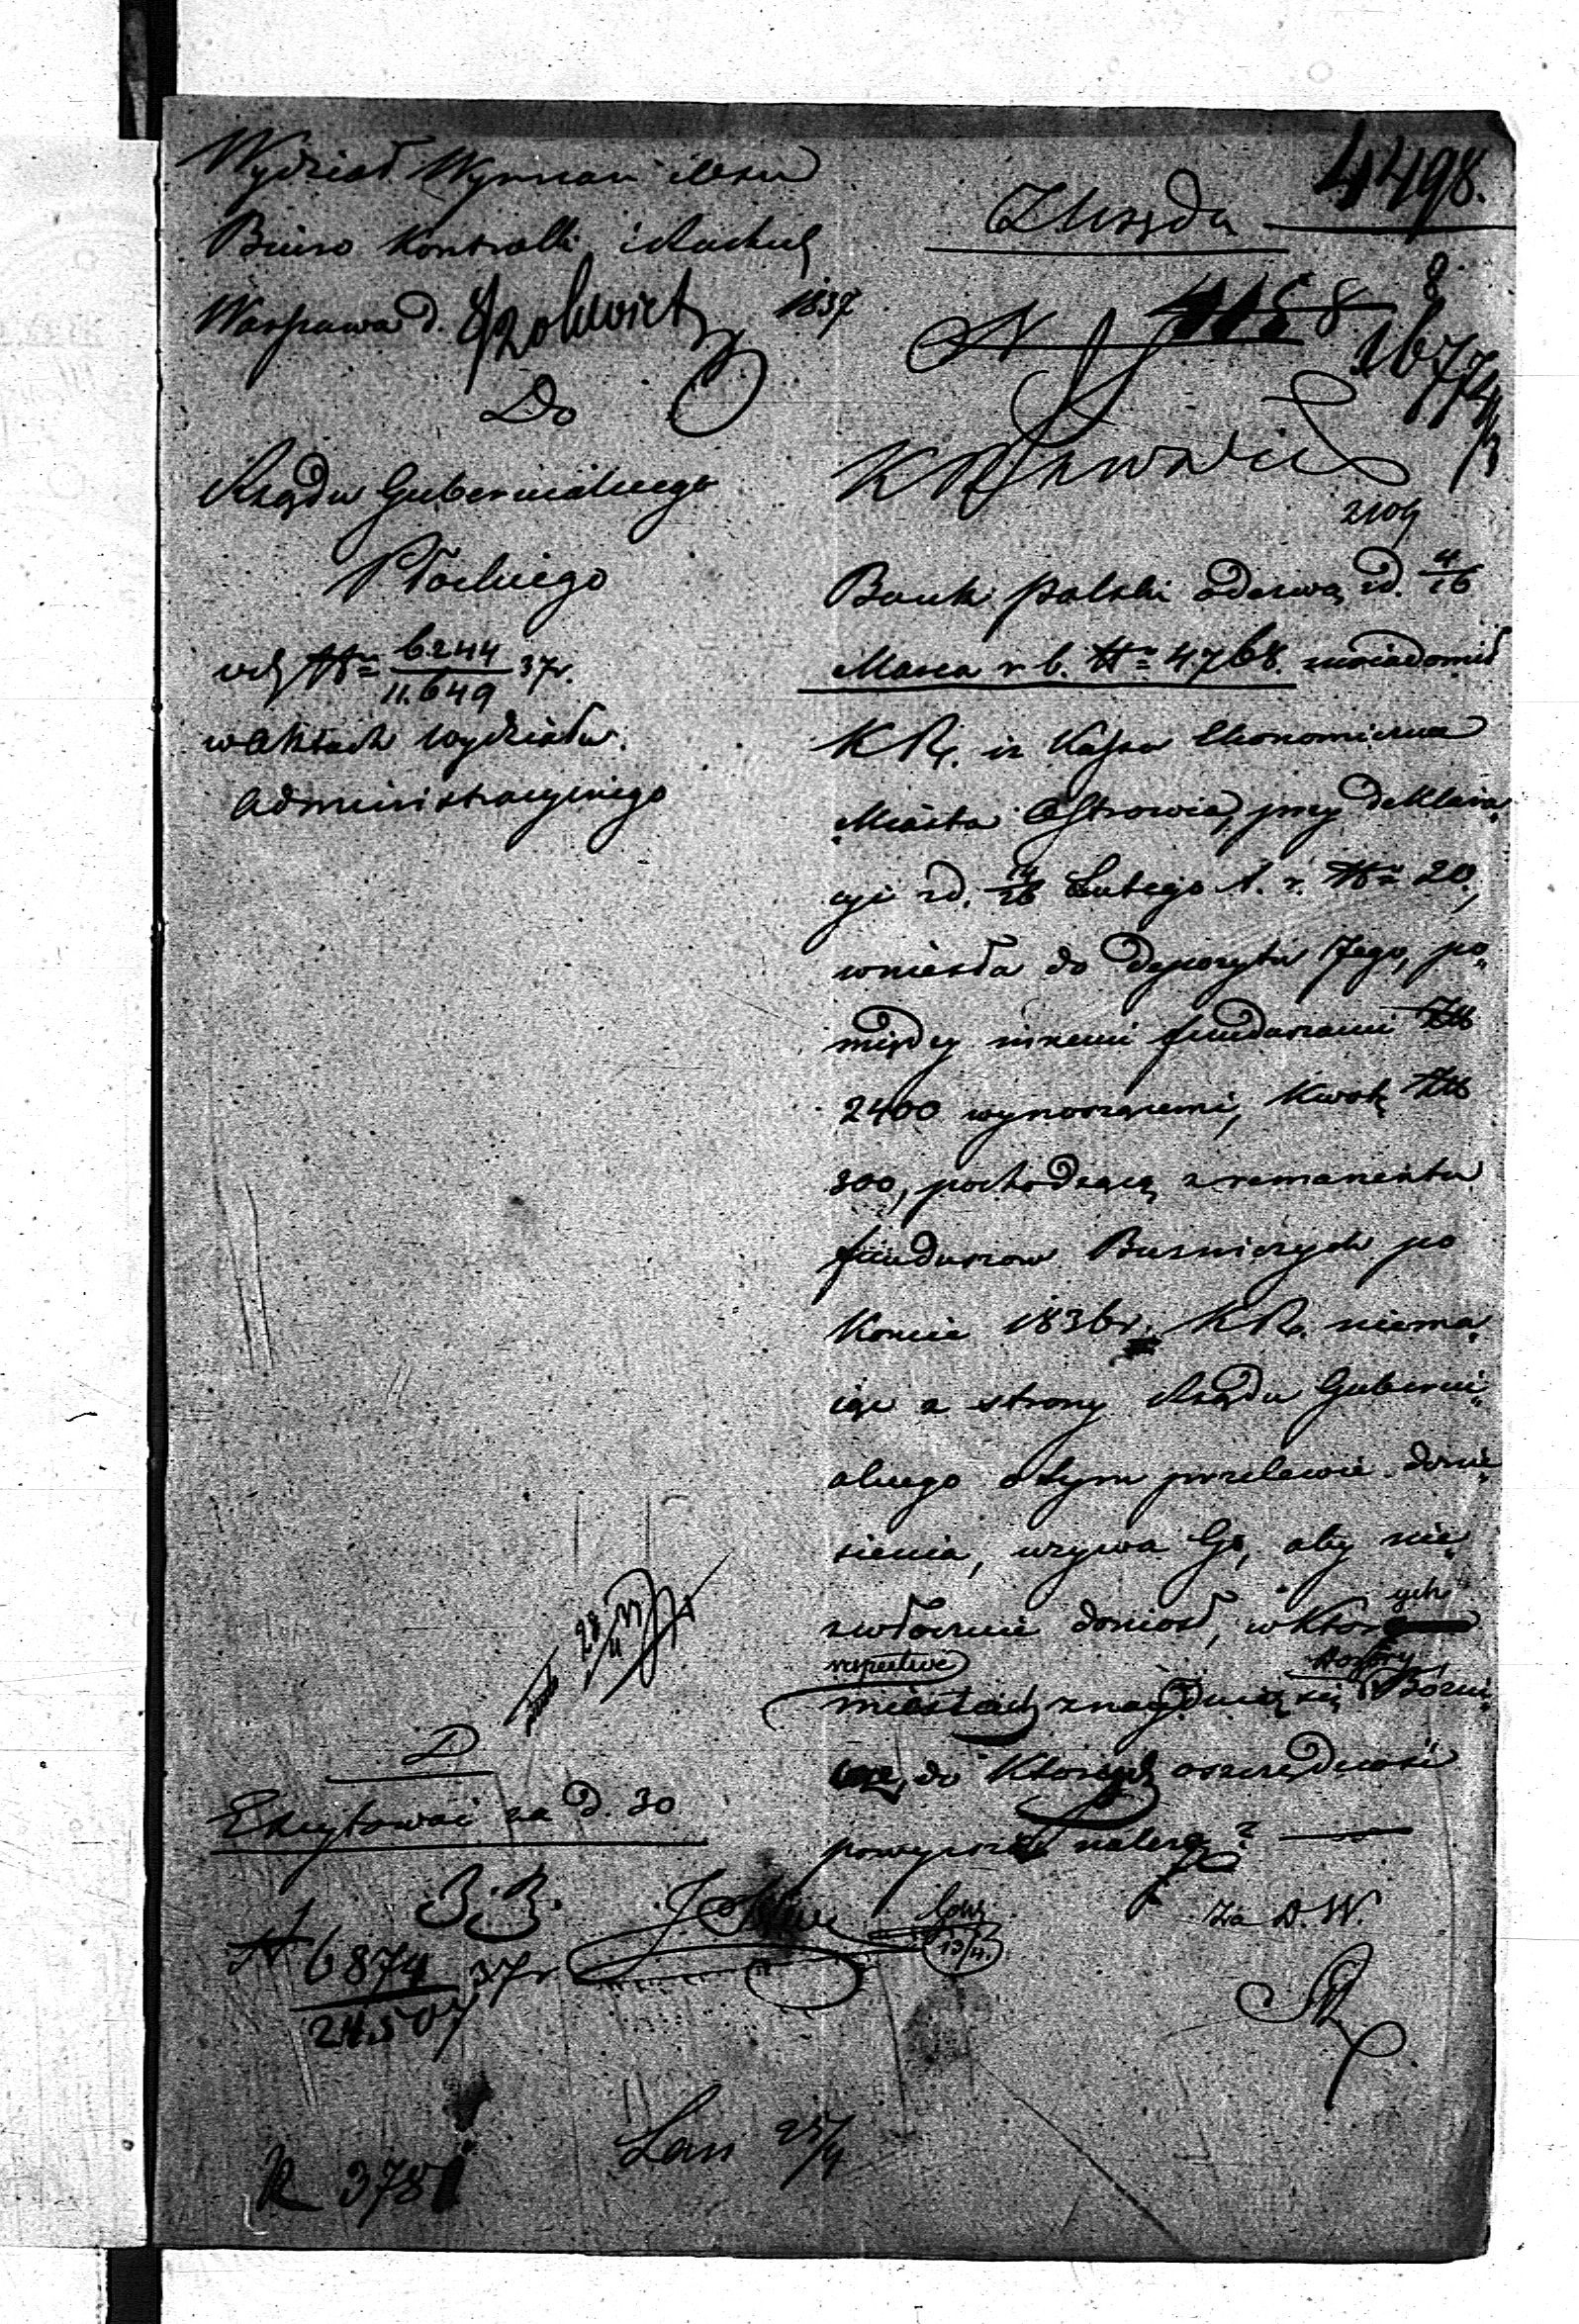 Wydział Wyznań
Biuro Kontrolli i Rachub
Warszawa d. 1837
Do
Rządu Gubernialnego
Płockiego
6244
11.649 37r.
w aktach Wydziału
Administracyjnego
Z Urzędu
4498.
2109
Bank Polski odezwą z d. 4/16
Marca r. b. Nr 4768. uwiadomił
KR. iż Kassa Ekonomiczna
Miasta Ostrowia, przy deklara„
cyi z d. 14/26 Lutego t. r. Nr 20,
wniosła do depozytu Jego, po„
między innemi funduszami Złt
2400 wynoszącemi, Kwotę Złt
300, pochodzącą z remanentu
funduszow Buzniczych po
Koniec 1836 r. KR. niema„
iąc z strony Rządu Guberni„
alnego o tym przelewie donie„
sienia, wzywa Go, aby nie„
zwłocznie doniosł, w ktorych
respective
miastach znayduią się Bożni„
cze, do Ktorych oszczędności
powyższe należą?
Za D. W.
Expedyować za d. 30
N 6874
24.507 37r
R 3781